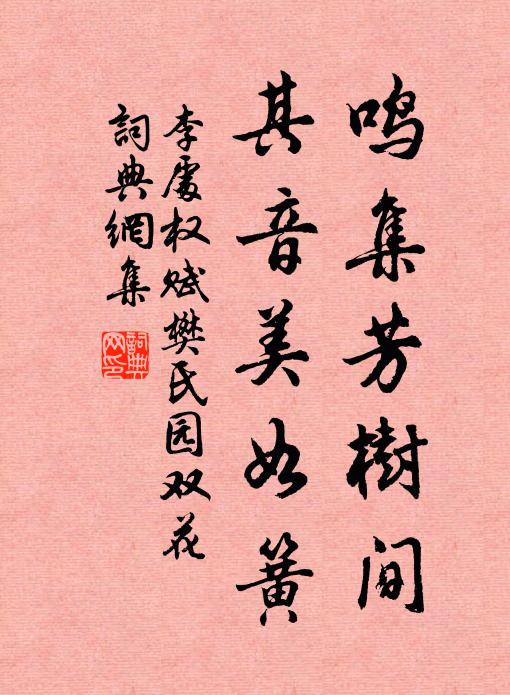 鸣集芳樹间
其音美如簧
李處权赋樊氏园双花
詞典網集
詞典网印